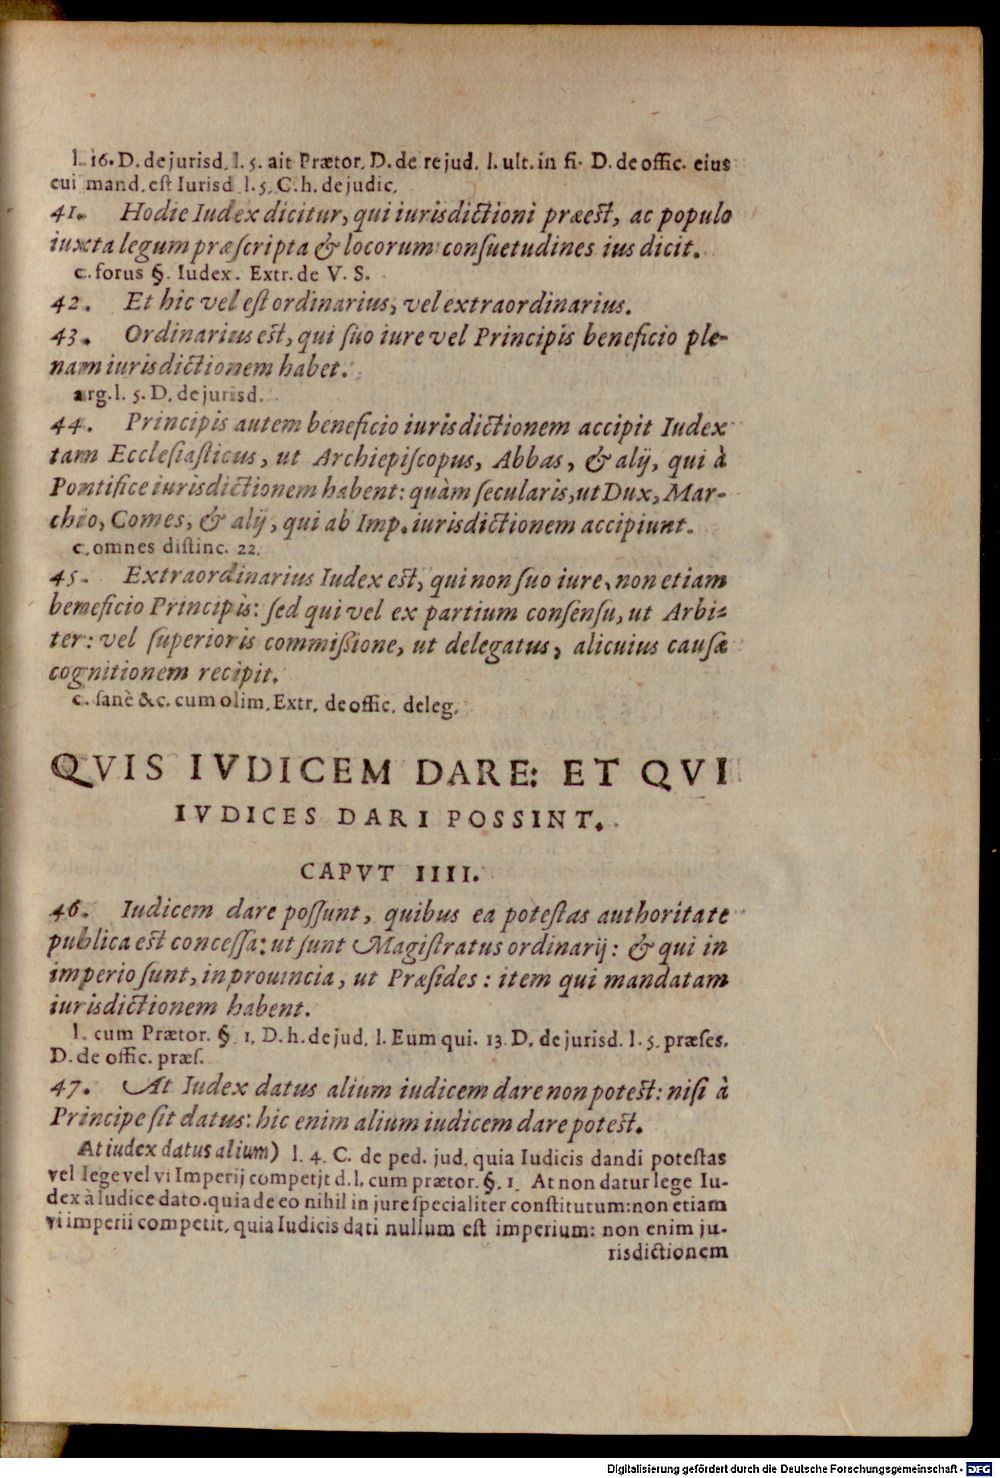 l. 16. D. de jurisd. l. 5. ait Prætor. D. de re jud. l. ult. in fi. D. de offic. eius
cui mand. est Iurisd l. 5. C. h. de judic.
41. Hodie Iudex dicitur, qui iurisdictioni præest, ac populo
iuxta legum præscripta & locorum consuetudines ius dicit.
c. forus §. Iudex. Extr. de V. S.
42. Et hic vel est ordinarius, vel extraordinarius.
43. Ordinarius est, qui suo iure vel Principis beneficio ple-
nam iurisdictionem habet.
arg. l. 5. D. de jurisd.
44. Principis autem beneficio iurisdictionem accipit Iudex
tam Ecclesiasticus, ut Archiepiscopus, Abbas, & alij, qui à
Pontifice iurisdictionem habent: quàm secularis, ut Dux, Mar-
chio, Comes, & alij, qui ab Imp. iurisdictionem accipiunt.
c. omnes distinc. 22.
45. Extraordinarius Iudex est, qui non suo iure, non etiam
beneficio Principis: sed qui vel ex partium consensu, ut Arbi-
ter: vel superioris commißione, ut delegatus, alicuius causæ
cognitionem recipit.
c. sanè & c. cum olim. Extr. de offic. deleg.
QVIS IVDICEM DARE: ET QVI
IVDICES DARI POSSINT.
CAPVT IIII.
46. Iudicem dare possunt, quibus ea potestas authoritate
publica est concessa: ut sunt Magistratus ordinarij: & qui in
imperio sunt, in prouincia, ut Præsides: item qui mandatam
iurisdictionem habent.
l. cum Prætor. § 1. D. h. de jud. l. Eum qui. 13. D. de jurisd. l. 5. præses.
D. de offic. præs.
47. At Iudex datus alium iudicem dare non potest: nisi à
Principe sit datus: hic enim alium iudicem dare potest.
At iudex datus alium) l. 4. C. de ped. jud. quia Iudicis dandi potestas
vel lege vel vi Imperij competit d. l. cum prætor. §. 1. At non datur lege Iu-
dex à Iudice dato. quia de eo nihil in jure specialiter constitutum: non etiam
vi imperii competit, quia Iudicis dati nullum est imperium: non enim ju-
risdictionem
Digitalisierung gefördert durch die Deutsche Forschungsgemeinschaft - DFG